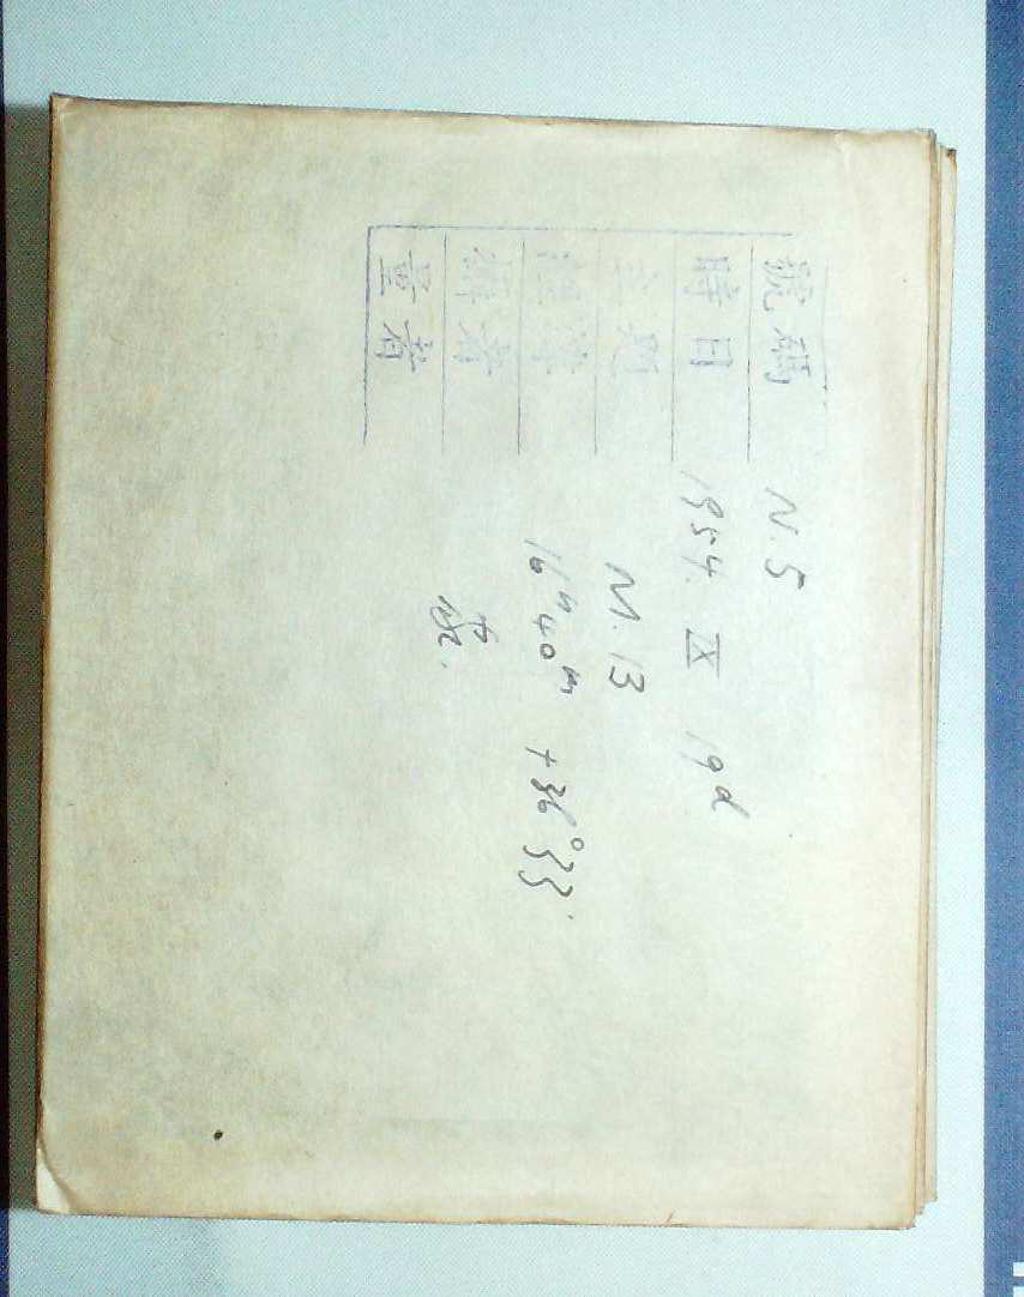 號碼 N.5
時日 1954. IX 19d
主題 M.13
16h40m +36°33'
者
量者